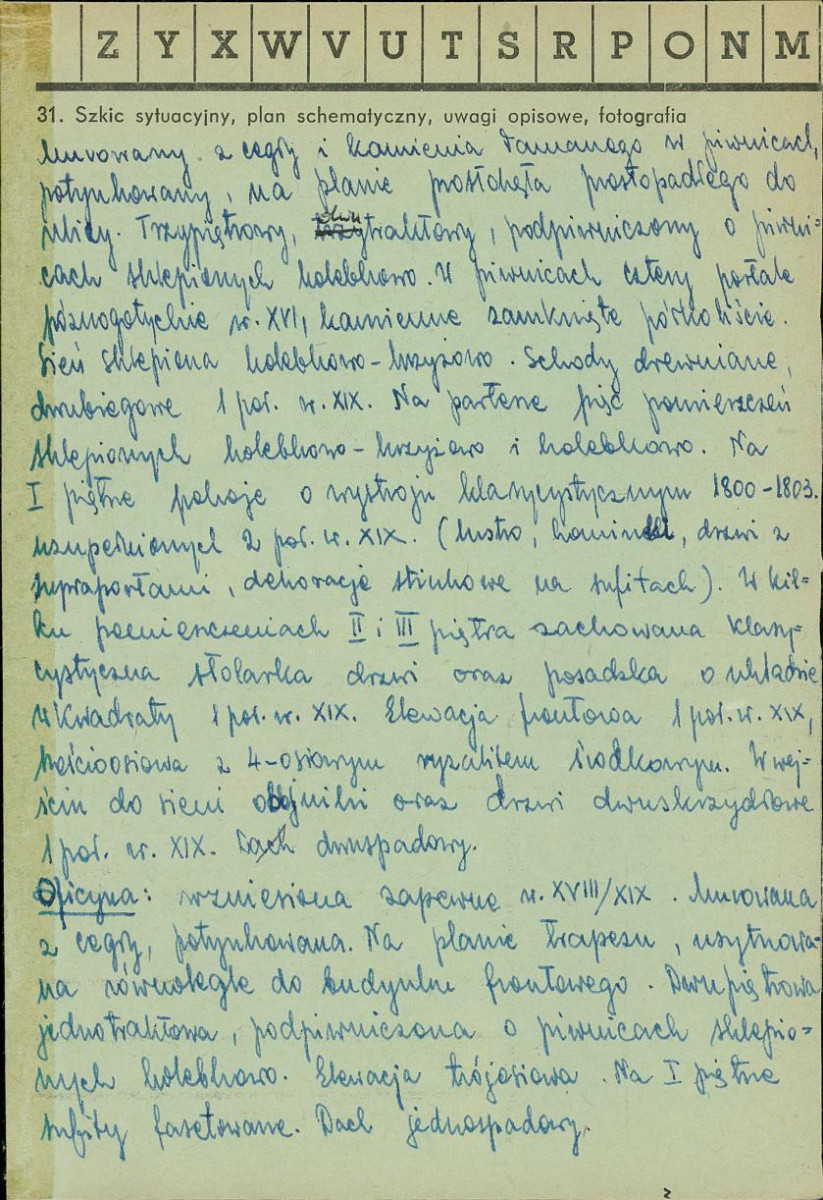 Z Y X W V U T S R P O N M
31. Szkic sytuacyjny, plan schematyczny, uwagi opisowe, fotografia
Murowany z cegły i kamienia łamanego w piwnicach,
potynkowany, na planie prostokąta prostopadłego do
ulicy. Trzypiętrowy, dwutraktowy, podpiwniczony o piwni=
cach sklepionych kolebkowo. W piwnicach cztery portale
późnogotyckie w. XVI, kamienne zamknięte półkoliście.
Sień sklepiona kolebkowo-krzyżowo. Schody drewniane,
dwubiegowe 1 poł. w. XIX. Na parterze pięć pomieszczeń
sklepionych kolebkowo-krzyżowo i kolebkowo. Na
I piętrze pokoje o wystroju klasycystycznym 1800-1803.
uzupełnionych 2 poł. w. XIX. (lustro, kominek, drzwi z
supraportami, dekoracje stiukowe na sufitach). W kil=
ku pomieszczeniach II i III piętra zachowana klasy=
cystyczna stolarka drzwi oraz posadzka o układzie
w kwadraty 1 poł. w. XIX. Elewacja frontowa 1 poł. w. XIX,
sześcioosiowa z 4-osiowym ryzalitem środkowym. W wej=
ściu do sieni odbijniki oraz drzwi dwuskrzydłowe
1 poł. w. XIX. Dach dwuspadowy.
Oficyna: wzniesiona zapewne w. XVIII/XIX. Murowana
z cegły, potynkowana. Na planie trapezu, usytuowa=
na równolegle do budynku frontowego. Dwupiętrowa
jednotraktowa, podpiwniczona o piwnicach sklepio=
nych kolebkowo. Elewacja trójosiowa. Na I piętrze
sufity fasetowane. Dach jednospadowy.
2